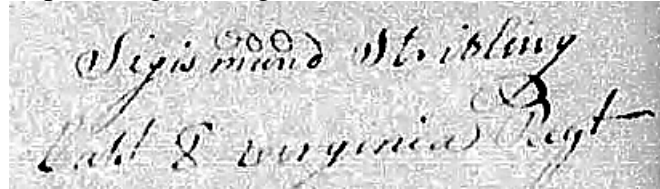 Sigismund Stribling
Capt 8 virginia Regt